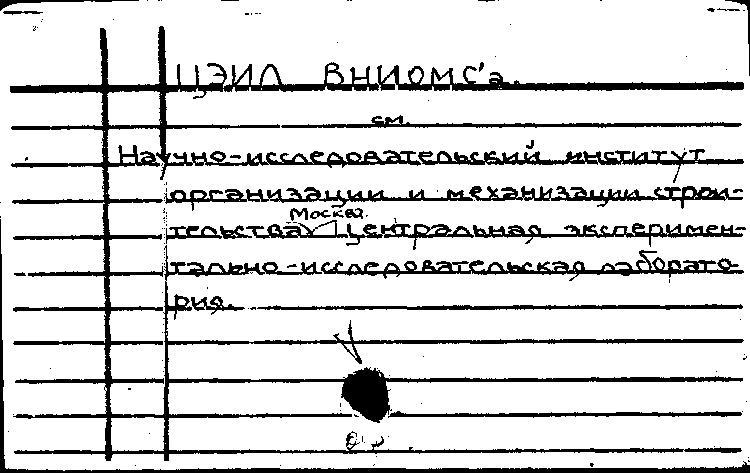 ЦЭИЛ ВНИОМС'а.
см.
Научно-исследовательский институт
организации и механизации строи-
тельства Москва. Центральная эксперимен-
тально-исследовательская лаборато-
рия.